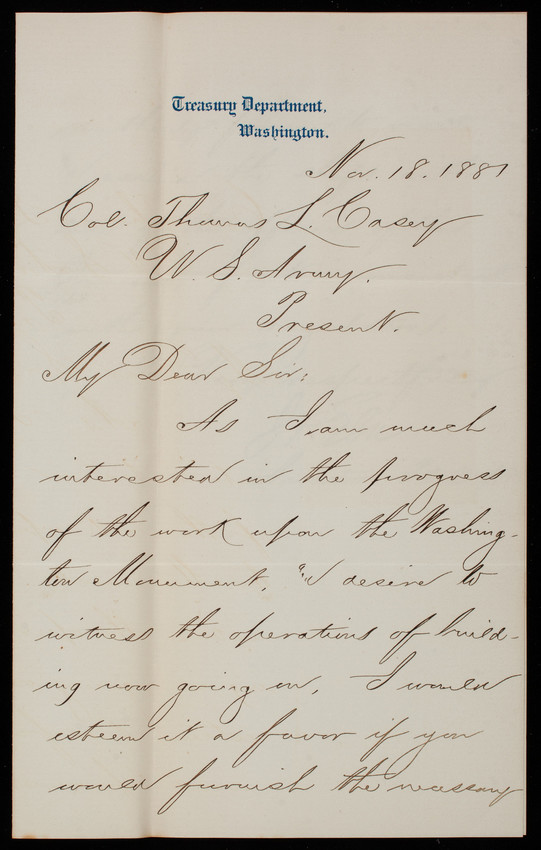 Treasury Department,
Washington.
Nov. 18. 1881
Col. Thomas L. Casey
U. S. Army.
Present.
My Dear Sir:
As I am much
interested in the progress
of the work upon the Washing-
ton Monument, & desire to
witness the operations of build-
ing now going on, I would
esteem it a favor if you
would furnish the necessary